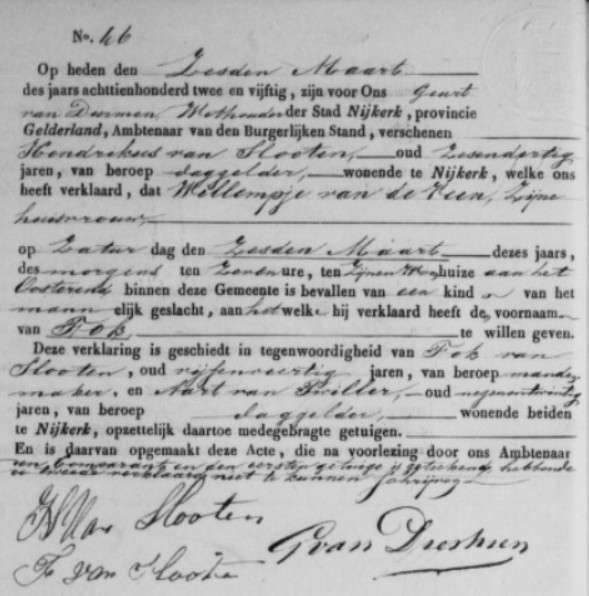 No. 46
Op heden den Zesden Maart
des jaars achttienhonderd twee en vijftig, zijn voor Ons Geurt
van Wethouder der Stad Nijkerk, provincie
Gelderland, Ambtenaar van den Burgerlijken Stand, verschenen
Hendrikus van Slooten, oud Zesendertig
jaren, van beroep daggelder, wonende te Nijkerk, welke ons
heeft verklaard, dat Willempje van de Veen, Zijne
huisvrouw,
op Zatur dag den Zesden Maart dezes jaars,
des morgens ten Zeven ure, ten Zijnen Woonhuize aan het
Oosterend binnen deze Gemeente is bevallen van een kind van het
mannelijk geslacht, aan hetwelk hij verklaard heeft de voornaam
van Fok te willen geven.
Deze verklaring is geschiedt in tegenwoordigheid van Fok van
Slooten, oud vijfenveertig jaren, van beroep mande-
maker, en Aart van Twiller, oud negenentwintig
jaren, van beroep daggelder, wonende beiden
te Nijkerk, opzettelijk daartoe medegebragte getuigen.
En is daarvan opgemaakt deze Acte, die na voorlezing door ons Ambtenaar
den Comparant en den eersten getuige is geteekend, hebbende
de tweede verklaard niet te kunnen schrijven
H Van Slooten
F van Slooten
G van